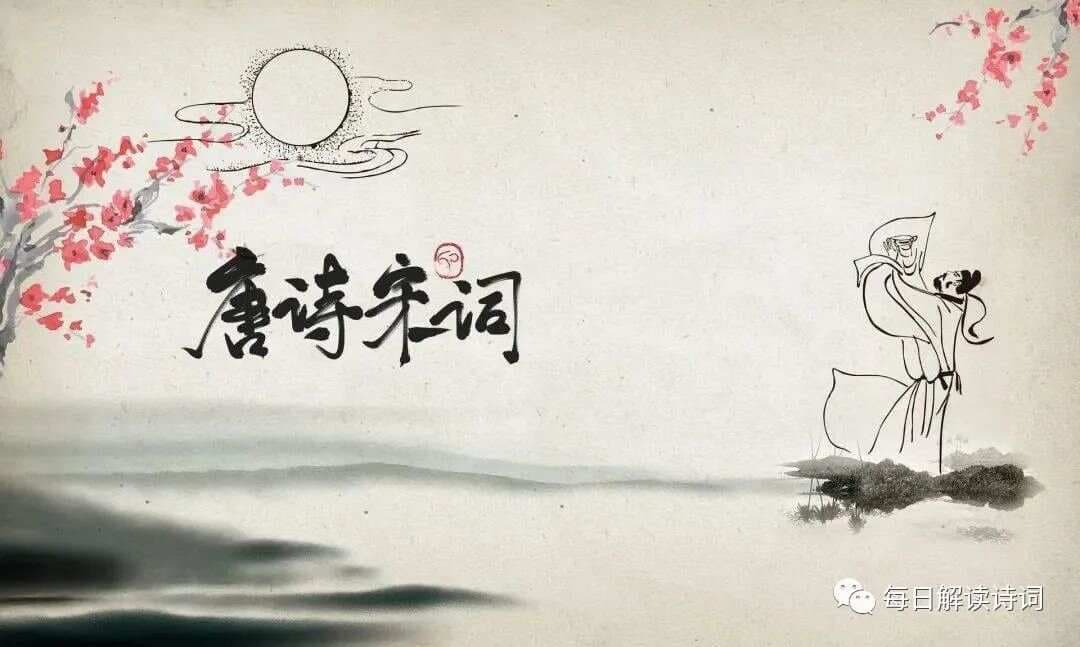 唐诗宋词
每日解读诗词